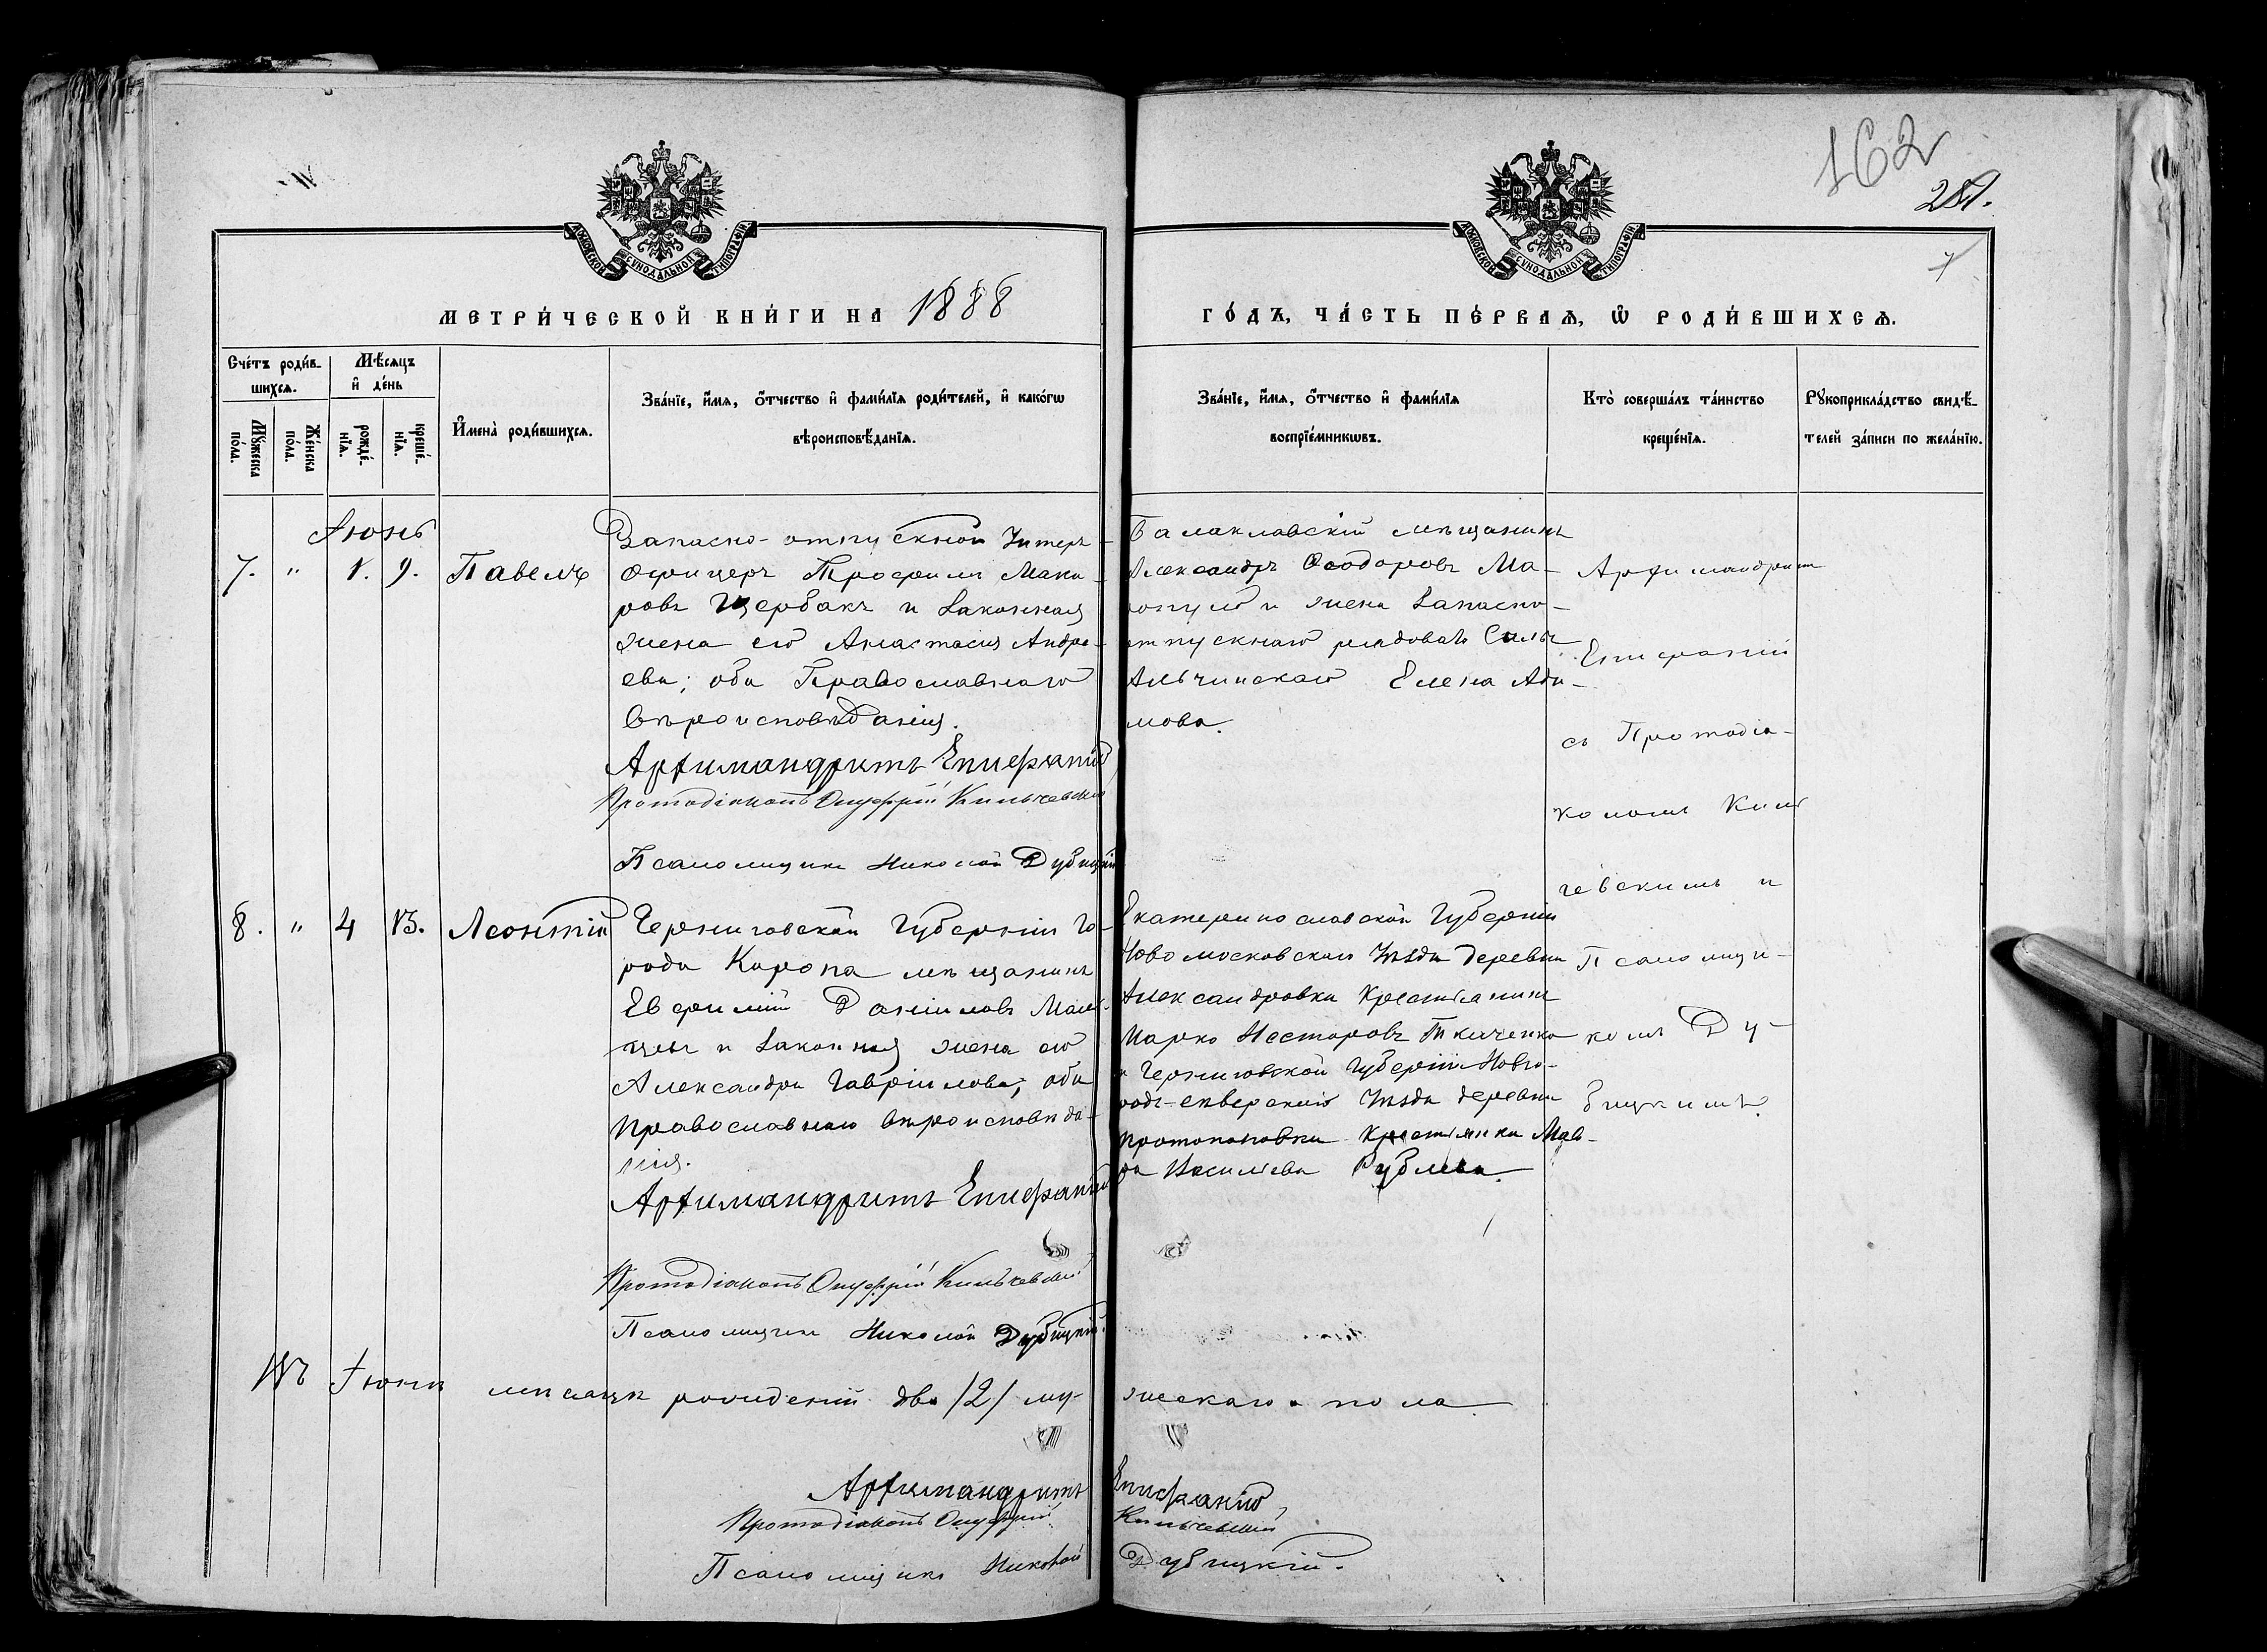 162
281.
МОСКОВСКОЙ СѴНОДАЛЬНОЙ ТИПОГРАФІИ
МОСКОВСКОЙ СѴНОДАЛЬНОЙ ТИПОГРАФІИ
МЕТРИ́ЧЕСКОЙ КНИ́ГИ НА 1888 ГО́ДЪ, ЧА́СТЬ ПЕ́РВАѦ, Ѡ҆ РОДИ́ВШИХСѦ.
Сче́тъ роди́в-
шихсѧ.
Мѣ́сѧцъ
и҆ де́нь
Мꙋ́жеска
по́ла.
Же́нска
по́ла.
рожде́-
нїѧ.
креще́-
нїѧ.
И҆мена̀ роди́вшихсѧ.
Зва́нїе, и҆́мѧ, ѻ҆́тчество и҆ фами́лїѧ роди́телей, и҆ како́гѡ
вѣроисповѣ́данїѧ.
Зва́нїе, и҆́мѧ, ѻ҆́тчество и҆ фами́лїѧ
воспрїе́мникѡвъ.
Кто̀ соверша́лъ та́инство
креще́нїѧ.
Рꙋкоприкла́дство свидѣ́-
телей за́писи по жела́нїю.
Іюнь
7. " 1. 9. Павелъ
Запасно-отпускной Унтеръ-
офицеръ Трофимъ Мака-
ровъ Щербакъ и Законная
жена его Анастасия Андре-
ева; оба Православнаго
Вѣроисповѣданія.
Архимандритъ Епифаній
Протодіаконъ Онуфрій Кильчевскій
Псаломщикъ Николай Дубицкій
Балаклавскій мѣщанинъ
Александръ Ѳеодоровъ Ма-
ропуло и жена Запасно-
отпускнаго рядоваго
Елена
мова.
Архимандритъ
Епифаній
съ Протодіа-
кономъ Киль
чевскимъ и
Псаломщи-
комъ Ду-
бицкимъ.
8. " 4 13. Леонтій
Черниговской Губерніи Го-
рода Коропа мѣщанинъ
Евфимій Даніиловъ
и Законная жена его
Александра Гавріилова; оба
православнаго вѣроисповѣда-
нія.
Архимандритъ Епифаній
Протодіаконъ Онуфрій Кильчевскій
Псаломщикъ Николай Дубицкій.
Екатеринославской Губерніи
Новомосковскаго Уѣзда деревни
Александровки Крестьянинъ
Марко Несторовъ Ткаченко
и Черниговской Губерніи Новго-
родъ-Сѣверскаго Уѣзда деревни
Протопоповки крестьянка Мав-
ра Васильева Рублева.
Въ Іюнѣ мѣсяцѣ рожденій два /2/ му- жескаго пола.
Архимандритъ Епифаній
Протодіаконъ Онуфрій Кильчевскій
Псаломщикъ Николай Дубицкій.